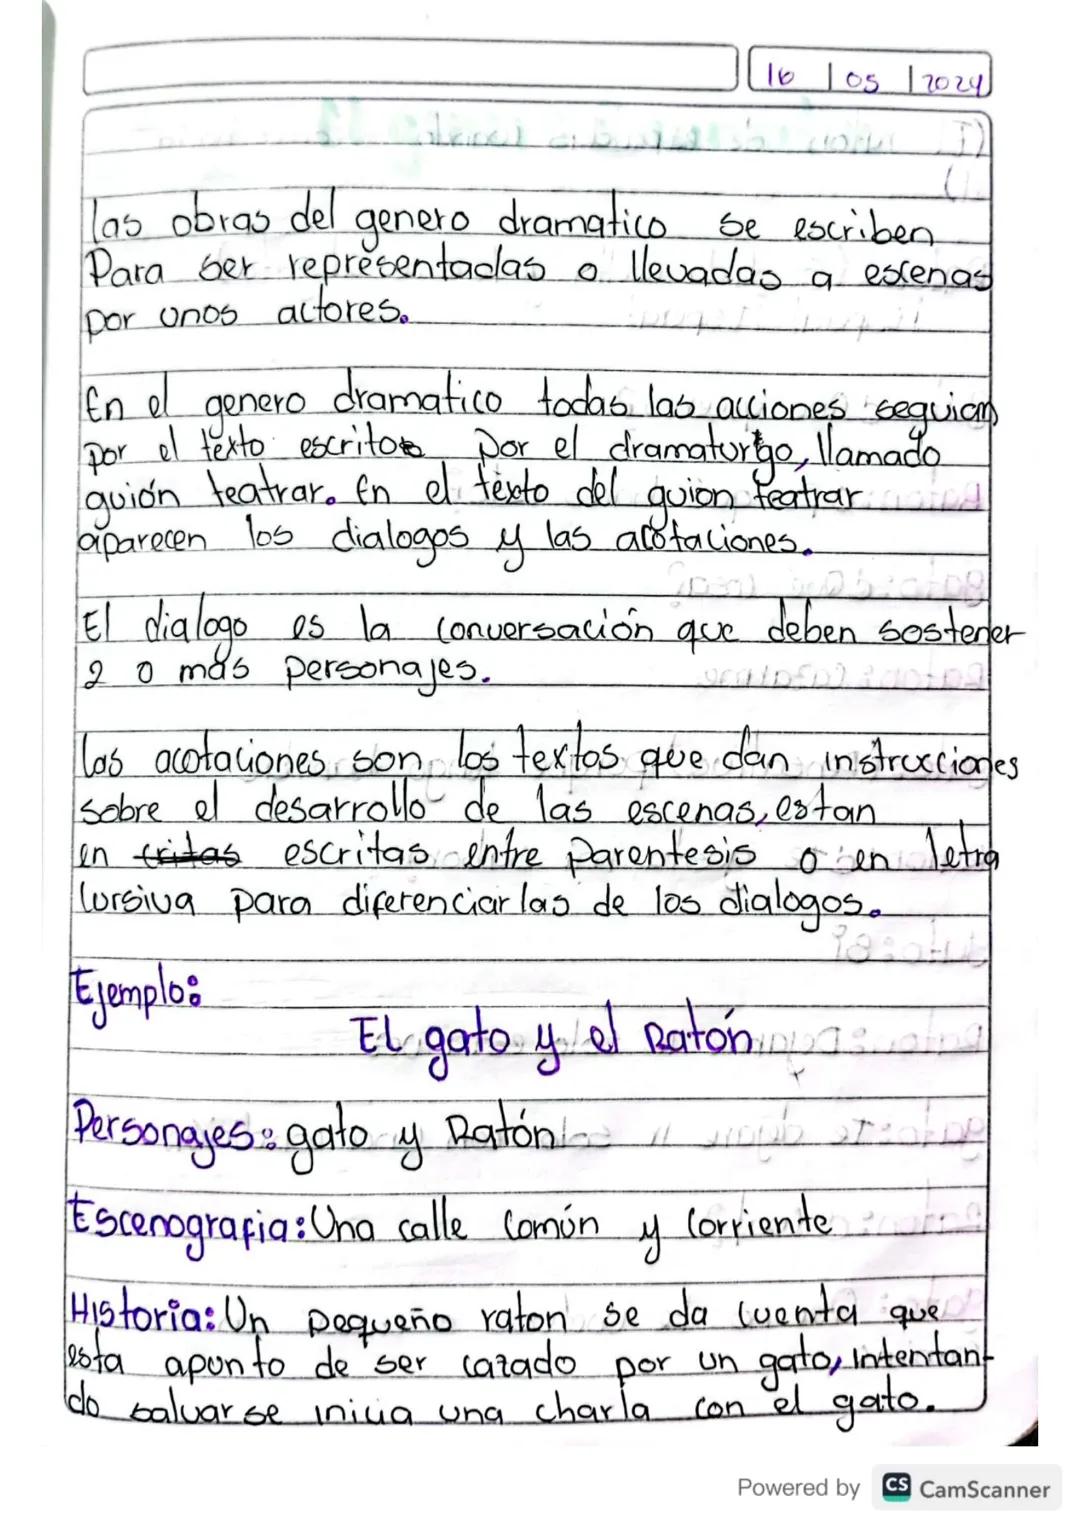 16 | 05 | 2024
las obras del genero dramatico se escriben
Para ser representadas o llevadas a escenas
por unos actores.
En el genero dramatico todas las acciones seguian
por el texto escrito por el dramaturgo, llamado
guión teatrar. En el texto del guion teatrar
aparecen los dialogos y las acotaciones.
El dialogo es la conversación que deben sostener
2 o más personajes.
Las acotaciones son los textos que dan instrucciones
sobre el desarrollo de las escenas, estan
en critas escritas entre parentesis o en letra
Cursiva para diferenciarlas de los dialogos.
Ejemplo:
El gato y el Ratón
Personajes: gato y Ratón
Escenografia: Una calle Común y Corriente
Historia: Un pequeño raton se da cuenta que
esta apunto de ser cazado por un gato, intentan-
do salvarse inicia una charla con el gato.
Powered by CS CamScanner